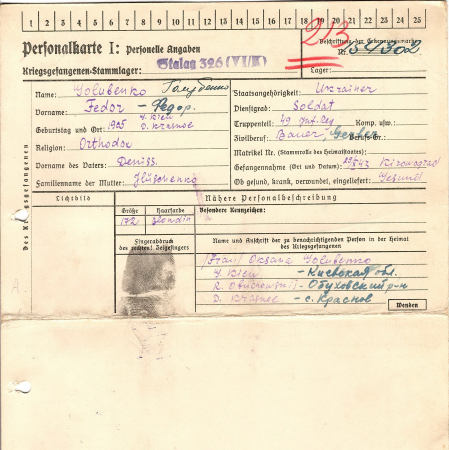 1 2 3 4 5 6 7 8 9 10 11 12 13 14 15 16 17 18 19 20 21 22 23 24 25
213
Personalkarte I: Personelle Angaben
Beschriftung der Erkennungsmarke
Nr. 54302
Kriegsgefangenen-Stammlager: Stalag 326 (VI/K)
Lager:
Des Kriegsgefangenen
Name: Golubenko Голубенко
Vorname: Fedor - Федор.
Geburtstag und Ort: 1925 G. Kiew D. Krasnoe
Religion: Orthodox
Vorname des Vaters: Deniss.
Familienname der Mutter: Gluschenko
Staatsangehörigkeit: Ukrainer
Dienstgrad: Soldat
Truppenteil: 49 Inf. Reg Komp. usw.:
Zivilberuf: Bauer, Gerber Berufs-Gr.:
Matrikel Nr. (Stammrolle des Heimatstaates):
Gefangennahme (Ort und Datum): Kirowograd
Ob gesund, krank, verwundet, eingeliefert: Gesund
Lichtbild
Nähere Personalbeschreibung
Größe Haarfarbe Besondere Kennzeichen:
172 blondin
Fingerabdruck
des rechten! Zeigefingers
Name und Anschrift der zu benachrichtigenden Person in der Heimat
des Kriegsgefangenen
Frau/ Oksana Golubenko
G. Kiew - Киевская обл.
R. Obuchowski - Обуховский р-н
D. Krasnoe - с. Краснов
Wenden